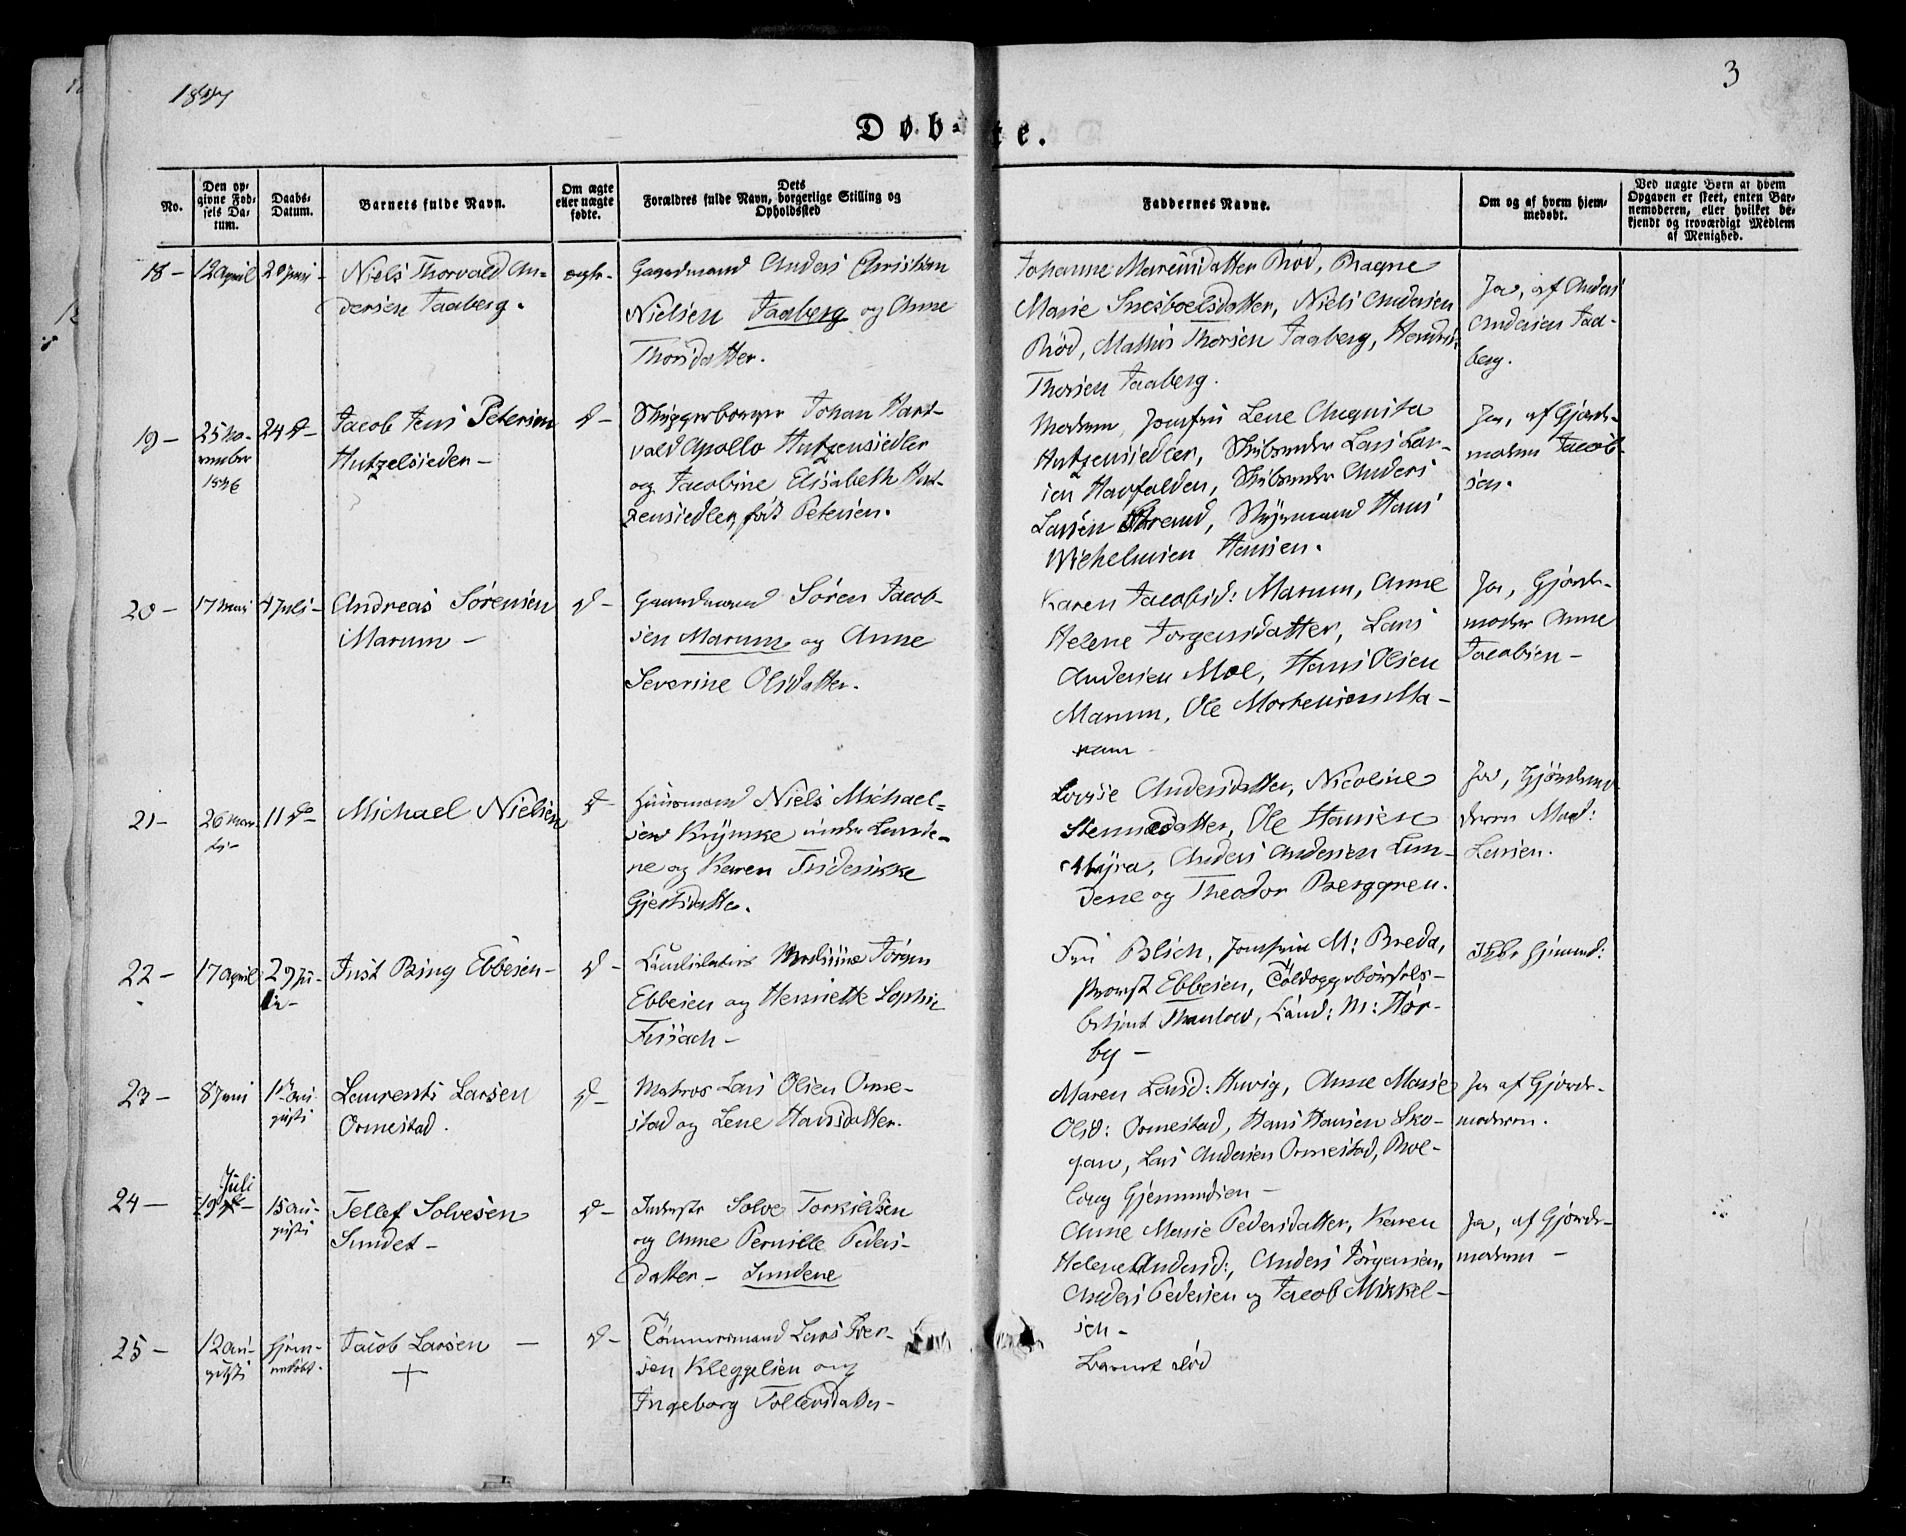 1847
3
Døbte.
No.
Den opgivne Fødsels Datum.
Daabs-Datum.
Barnets fulde Navn.
Om ægte eller uægte fødte.
Dets Forældres fulde Navn, borgerlige Stilling og Opholdssted
Faddernes Navne.
Om og af hvem hjemmedøbt.
Ved uægte Børn at hvem Opgaven er skeet, enten Barnemoderen, eller hvilket bekjendt og troværdigt Medlem af Menighed.
18 –
12 April
20 Juni –
Niels Thorvald An-
dersen Taaberg.
ægte –
Gaardmand Anders Christian
Nielsen Taaberg og Anne
Thorsdatter.
Johanne Marensdatter Röd, Ragne
Marie Snesboelsdatter, Niels Andersen
Röd, Mathis Thorsen Taaberg,
Thorsen Taaberg.
Ja, af Anders
Andersen Taa-
berg.
19 –
25 No-
vember
1846
24 D –
Jacob Jens Petersen
Hutzelsieder –
D –
Skiggerborger Johan Hart-
vald Apollo Hutzensiedler
og Jacobine Elisabeth Hut-
zensiedler, född Petersen.
Modern, Jomfru Lene Augusta
Hutzensiedler, Skibsreder Lars Lar-
sen Havfalden, Skibsreder Anders
Larsen Strand, Styrmand Hans
Wilhelmsen Hansen.
Ja, af Gjord-
moder Jacob-
sen.
20 –
17 Mai
4 Juli –
Andreas Sörensen
Marum –
D –
Gaardmand Sören Jacob-
sen Marum og Anne
Severine Olsdatter.
Karen Jacobsd: Marum, Anne
Helene Jörgensdatter, Lars
Andersen Moe, Hans Olsen
Marum, Ole Mortensen Ma-
rum
Ja, Gjord-
moder Anne
Jacobsen –
21 –
26 Mar-
ts –
11 D –
Michael Nielsen
D –
Huusmand Niels Michael-
sen Krymke under Lunde-
ne og Karen Friderikke
Gjertsdatter.
Lovise Andersdatter, Nicoline
Stensdatter, Ole Hansen
Myra, Anders Andersen Lun-
dene og Theodor Berggren.
Ja, Gjordemo-
deren Mad:
Larsen.
22 –
17 April
29 Ju-
li –
Just Bing Ebbesen –
D –
Candidatus Medicine Jörgen
Ebbesen og Henriette Sophie
Fissach –
Fru Blich, Jomfru M: Breda,
Provst Ebbesen, Toldoppebörsels-
betjent Thaulow, Cand: M: Hör-
by –
Ikke hjemmed:
23 –
8 Juni
1ste Au-
gusti
Laurents Larsen
Ormestad.
D –
Matros Lars Olsen Orme-
stad og Lene Hansdatter.
Maren Larsd: Huvig, Anne Marie
Olsd: Ormestad, Hans Hansen Sko-
gan, Lars Andersen Ormestad, Roe-
laug Gjermundsen –
Ja af Gjord-
moderen.
24 –
Juli
19
15 Au-
gusti
Tellef Solvesen
Sundet –
D –
Inderste Solve Torkildsen
og Anne Pernille Peders-
datter – Sundene
Anne Marie Pedersdatter, Karen
Helene Andersd:, Anders Jörgensen,
Anders Pedersen og Jacob Mikkel-
sen –
Ja, af Gjord-
moderen –
25 –
12 Au-
gusti
hjem-
medöbt.
Jacob Larsen –
+
D –
Tömmermand Lars Iver-
sen Kleggelien og
Ingeborg Tollevsdatter –
Barnet död